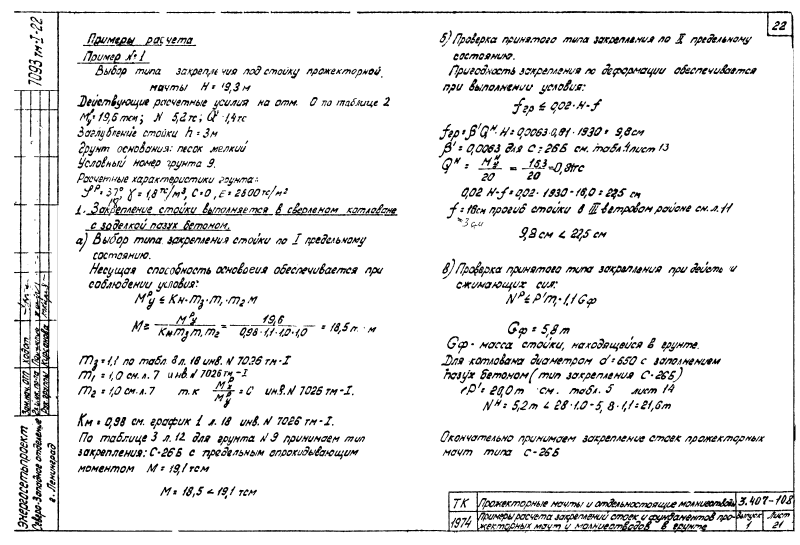 22
7093 тм-I-22
Примеры расчета
Пример №1
Выбор типа закрепления под стойку прожекторной
мачты H = 19,3 м
Действующие расчетные усилия на отм. 0 по таблице 2
М = 19,6 тсм; N 5,2 тс; Q 1,4 тс
Заглубление стойки h = 3м
Грунт основания: песок мелкий
Условный номер грунта 9.
Расчетные характеристики грунта:
= 37° γ = 1,8 тс/м³, C = 0, E = 2800 тс/м²
1. Закрепление стойки выполняется в сверленом котловане
с заделкой пазух бетоном.
а) Выбор типа закрепления стойки по I предельному
состоянию.
Несущая способность основания обеспечивается при
соблюдении условия:
Mᵖу ≤ Kн·m₃·m₁·m₂·M
M = Mᵖу / Kн m₃ m₁ m₂ = 19,6 / 0,98·1,1·1,0·1,0 = 18,5 т·м
m₃ = 1,1 по табл 8 л. 18 инв. N 7026 тм-I
m₁ = 1,0 см. л. 7 инв. N 7026 тм-I
m₂ = 1,0 см. л. 7 т.к = 0 инв. N 7026 тм-I.
Kм = 0,98 см. график 1 л. 18 инв. N 7026 тм-I.
По таблице 3 л. 12 для грунта N 9 принимаем тип
закрепления: С-26Б с предельным опрокидывающим
моментом M = 19,1 тсм
M = 18,5 < 19,1 тсм
б) Проверка принятого типа закрепления по II предельному
состоянию.
Пригодность закрепления по деформации обеспечивается
при выполнении условия:
fгр ≤ 0,02·H-f
fгр = β' Qᴴ·H = 0,0063·0,81·1930 = 9,8 см
β' = 0,0063 для С-26Б см. табл. 4 лист 13
Qᴴ = Mᴴу / 20 = / 20 = 0,81 тс
0,02 H-f = 0,02·1930-16,0 = 22,5 см
f = 16см прогиб стойки в III ветровом районе см. л. 11
9,8 см < 22,5 см
в) Проверка принятого типа закрепления при действии
сжимающих сил:
Nᵖ ≤ P'm₁-1,1 Gф
Gф = 5,8 т
Gф - масса стойки, находящейся в грунте.
Для котлована диаметром d = 650 с заполнением
пазух бетоном (тип закрепления С-26Б)
P' = 28,0 т см. табл. 5 лист 14
Nᴴ = 5,2т < 28·1,0-5,8·1,1 = 21,6т
Окончательно принимаем закрепление стоек прожекторных
мачт типа С-26Б
Энергосетьпроект
Северо-Западное отделение
г. Ленинград
ТК
1974
Прожекторные мачты и отдельностоящие молниеотводы
Примеры расчета закреплений стоек и фундаментов про-
жекторных мачт и молниеотводов в грунте
3.407-108
Выпуск
1
Лист
21